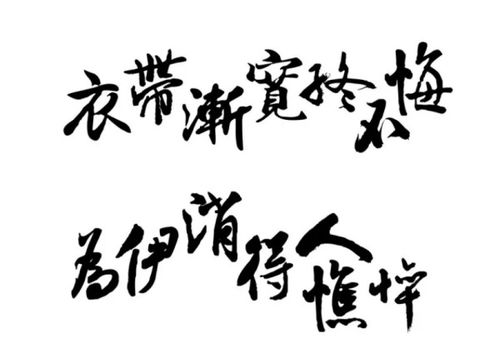 衣帶漸寬終不悔
為伊消得人憔悴